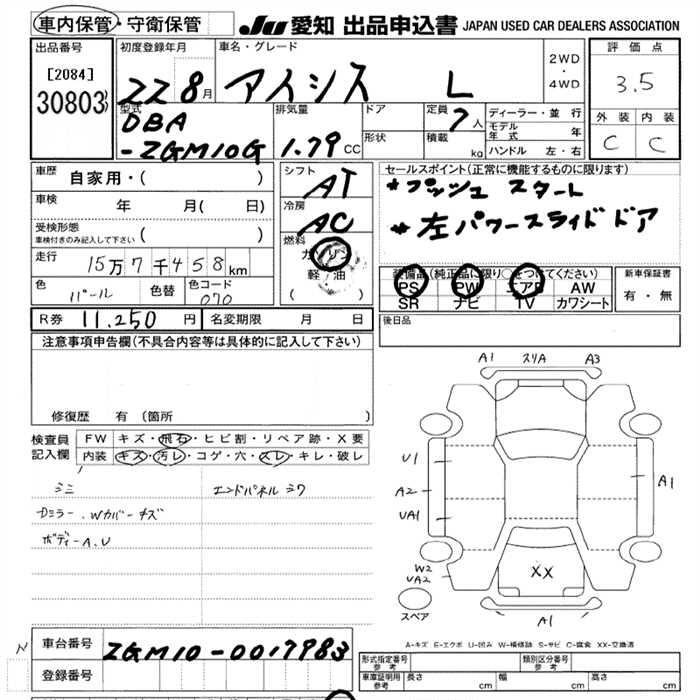 車内保管・守衛保管
JU 愛知 出品申込書 JAPAN USED CAR DEALERS ASSOCIATION
出品番号
[2084]
30803
初度登録年月
22 8月
車名・グレード
アイシス L
2WD
・
4WD
評価点
3.5
外装 内装
C C
型式
DBA
-ZGM10G
排気量
1.79 CC
ドア
形状
定員
7人
積載
kg
ディーラー・並行
モデル年式 年
ハンドル 左・右
車歴
自家用・( )
車検
年 月( 日)
受検形態
車検付きのみ記入して下さい ( )
走行
15万7千458km
色
パール
色替
色コード
070
シフト
AT
冷房
AC
燃料
ガソリン
軽・油
( )
セールスポイント(正常に機能するものに限ります)
*プッシュ スタート
*左パワースライドドア
装備品(純正品に限り○をつけてください)
PS PW エアB AW
SR ナビ TV カワシート
新車保証書
有・無
R券 11.250 円
名変期限 月 日
後日品
注意事項申告欄(不具合内容等は具体的に記入して下さい)
修復歴 有(箇所 )
検査員
記入欄
FW キズ・飛石・ヒビ割・リペア跡・X要
内装 キズ・汚レ・コゲ・穴・スレ・キレ・破レ
シミ
エンドパネルシワ
Dミラー.Wカバーキズ
ボディーA.U
A1 スリA A3
U1
A2
UA1
A1
W2
UA2
XX
スペア
A1
A-キズ E-エクボ U-凹み W-補修跡 S-サビ C-腐食 XX-交換済
N
車台番号
ZGM10-0017983
登録番号
形式指定番号
参考
類別区分番号
参考
車庫証明用
参考
長さ cm
幅 cm
高さ cm